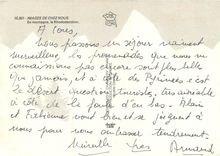 10.361 - IMAGES DE CHEZ NOUS.
En montagne, la Rhododendron.
A tous,
Nous passons un séjour vraiment
merveilleux les promenades que nous
connaissions pas encore sont plus belles
que jamais, et à côté de Pyrénées c'est
le désert question touriste,
à côté de la foule d'en bas. Alain
et Fabienne vont bien et se joignent à
nous pour vous embrasser tendrement.
Mireille Armand